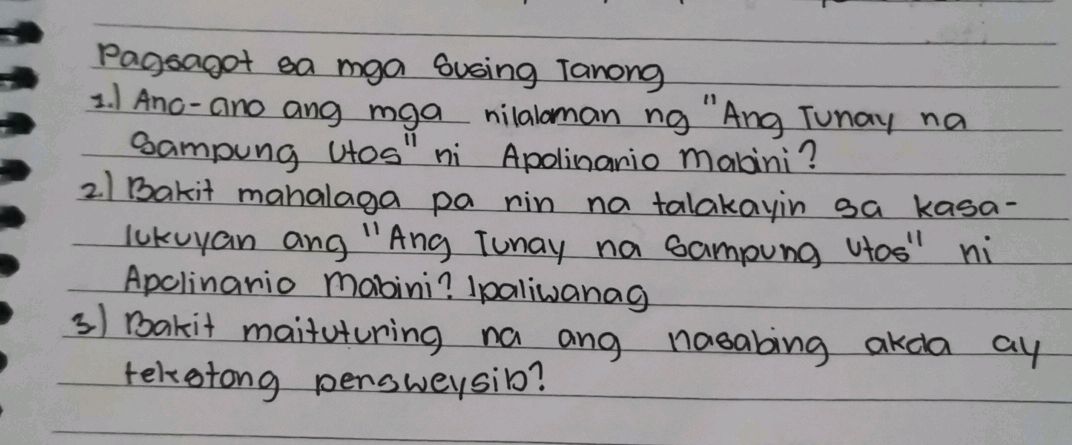 Pagsagot sa mga Susing Tanong
1.) Ano-ano ang mga nilalaman ng "Ang Tunay na
Sampung Utos" ni Apolinario Mabini?
2.) Bakit mahalaga pa rin na talakayin sa kasa-
lukuyan ang "Ang Tunay na Sampung Utos" ni
Apolinario Mabini? Ipaliwanag
3.) Bakit maituturing na ang nasabing akda ay
tekstong persweysib?